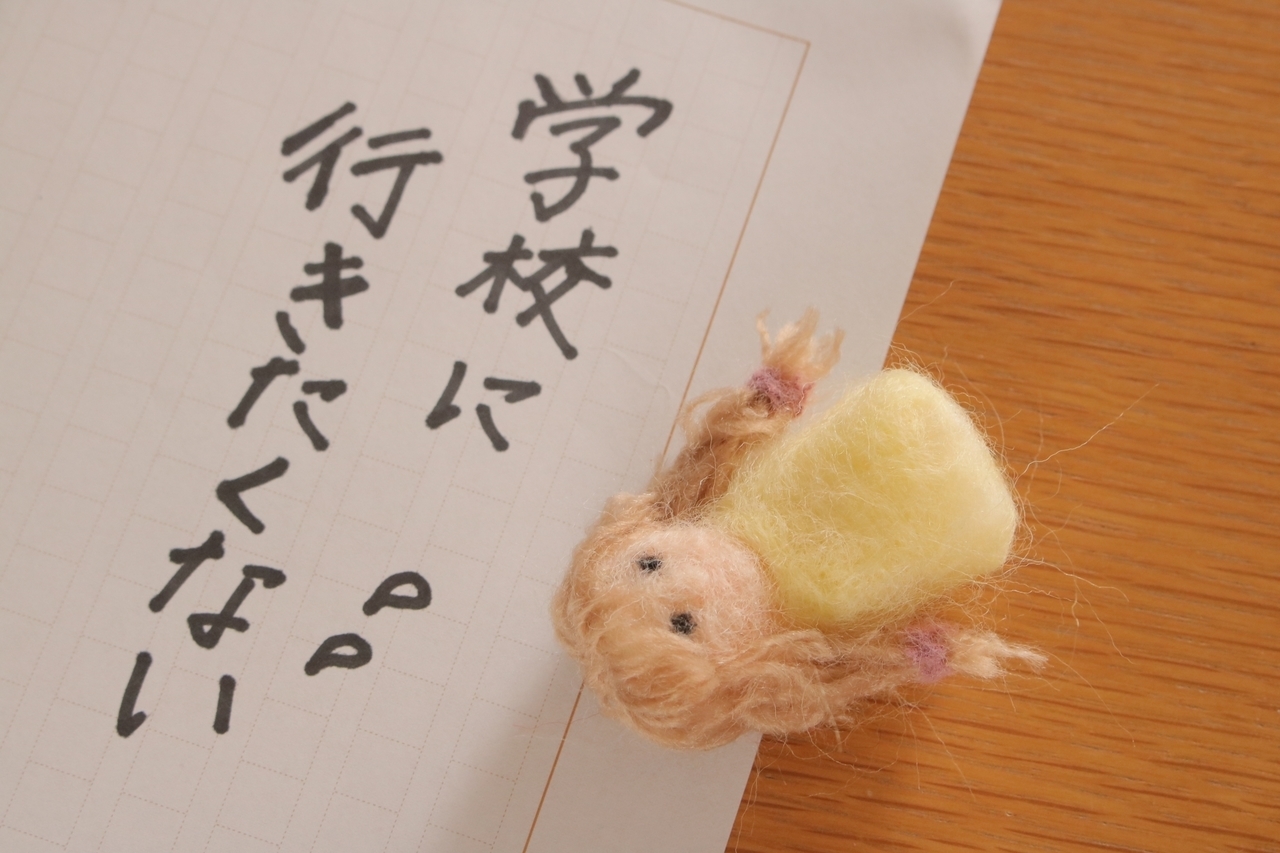 学校に
行きたくない